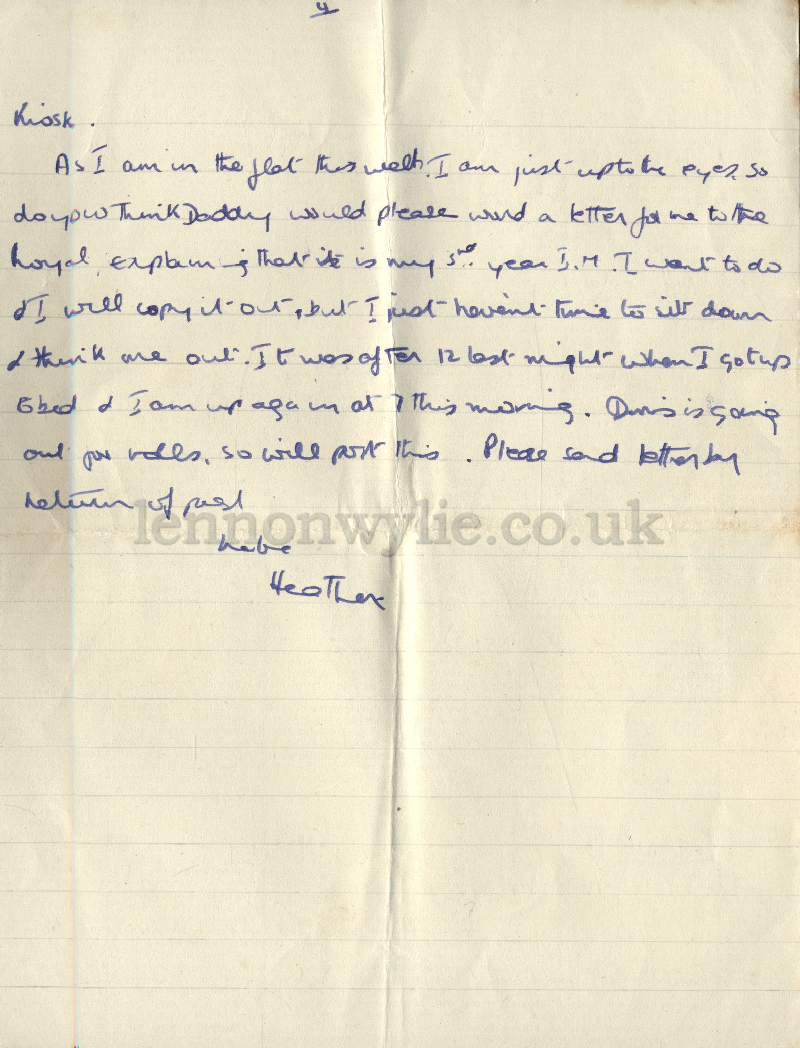 4
Kiosk.
As I am in the flat this week, I am just up to the eyes, so
do you think Daddy would please word a letter for me to the
Royal, explaining that it is my 3rd year I.M. I want to do
& I will copy it out, but I just haven't time to sit down
& think one out. It was after 12 last night when I got up
to bed & I am up again at 7 this morning. Doris is going
out for rolls, so will post this. Please send letter by
return of post
Love
Heather
lennonwylie.co.uk